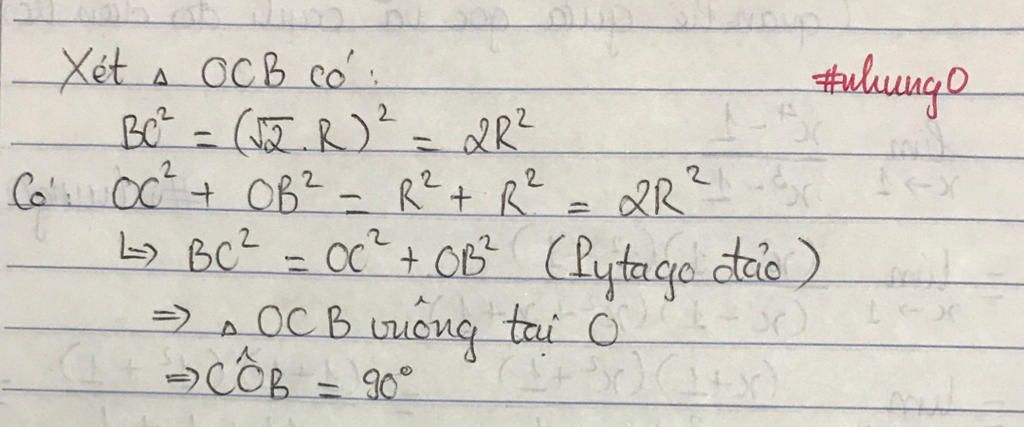 Xét △ OCB có:
#nhung0
BC² = (√2.R)² = 2R²
Có: OC² + OB² = R² + R² = 2R²
↳ BC² = OC² + OB² (Pytago đảo)
⇒ △ OCB vuông tại O
⇒ CÔB = 90°